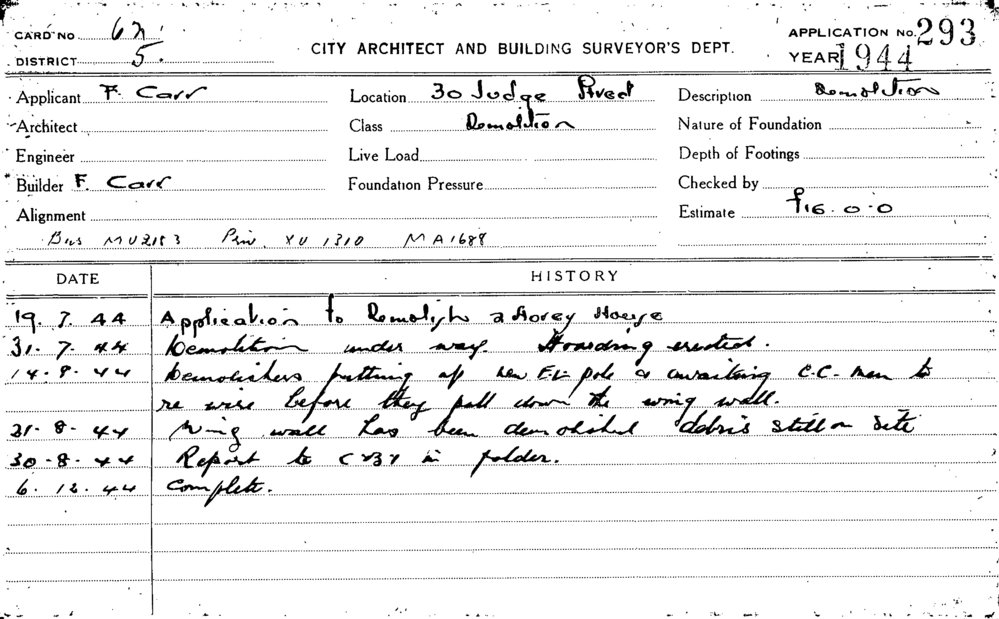 CARD NO 62
DISTRICT 5.
CITY ARCHITECT AND BUILDING SURVEYOR'S DEPT.
APPLICATION No. 293
YEAR 1944
Applicant F. Carr
Location 30 Judge Street
Description Demolition
Architect
Class Demolition
Nature of Foundation
Engineer
Live Load
Depth of Footings
Builder F. Carr
Foundation Pressure
Checked by
Alignment
Estimate £16.0.0
Bus MU2183 Priv. XU 1310 MA1688
DATE HISTORY
19.7.44 Application to Demolish 2 Storey House
31.7.44 Demolition under way. Hoarding erected.
14.8.44 Demolishers putting up new E.L. pole & awaiting C.C. men to
re wire before they pull down the wing wall.
31.8.44 Wing wall has been demolished debris still on site
30.8.44 Report to in folder.
6.12.44 Complete.